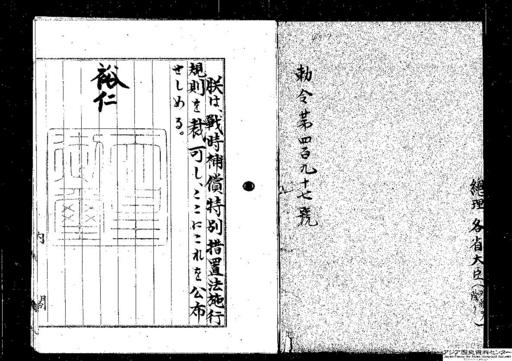 勅令第四百九十七號
總理 各省大臣
朕は、戰時補償特別措置法施行
規則を裁可し、ここにこれを公布
せしめる。
裕仁
内閣
アジア歴史資料センター